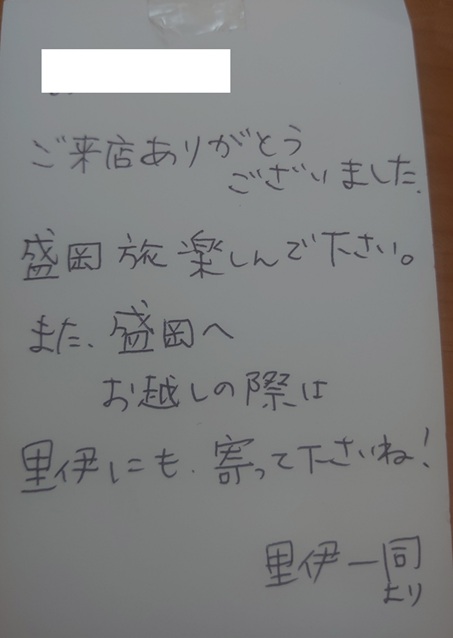 ご来店ありがとう
ございました.
盛岡旅楽しんで下さい。
また、盛岡へ
お越しの際は
里伊にも、寄って下さいね!
里伊一同
より